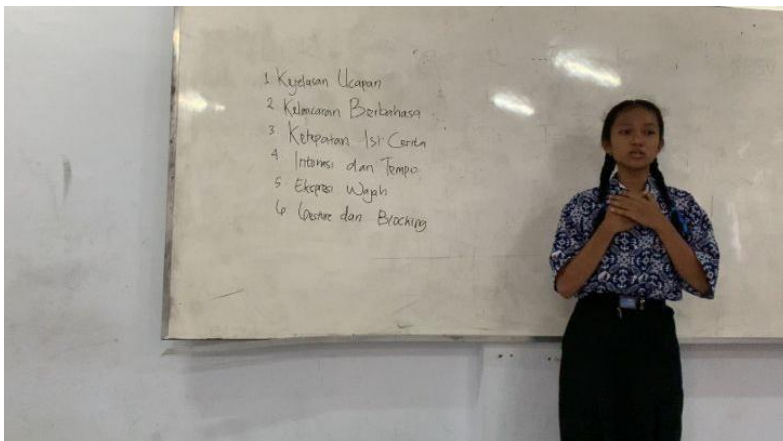 1 Kejelasan Ucapan
2 Kelancaran Berbahasa
3 Ketepatan Isi Cerita
4 Intonasi dan Tempo
5 Ekspresi Wajah
6 Gesture dan Blocking